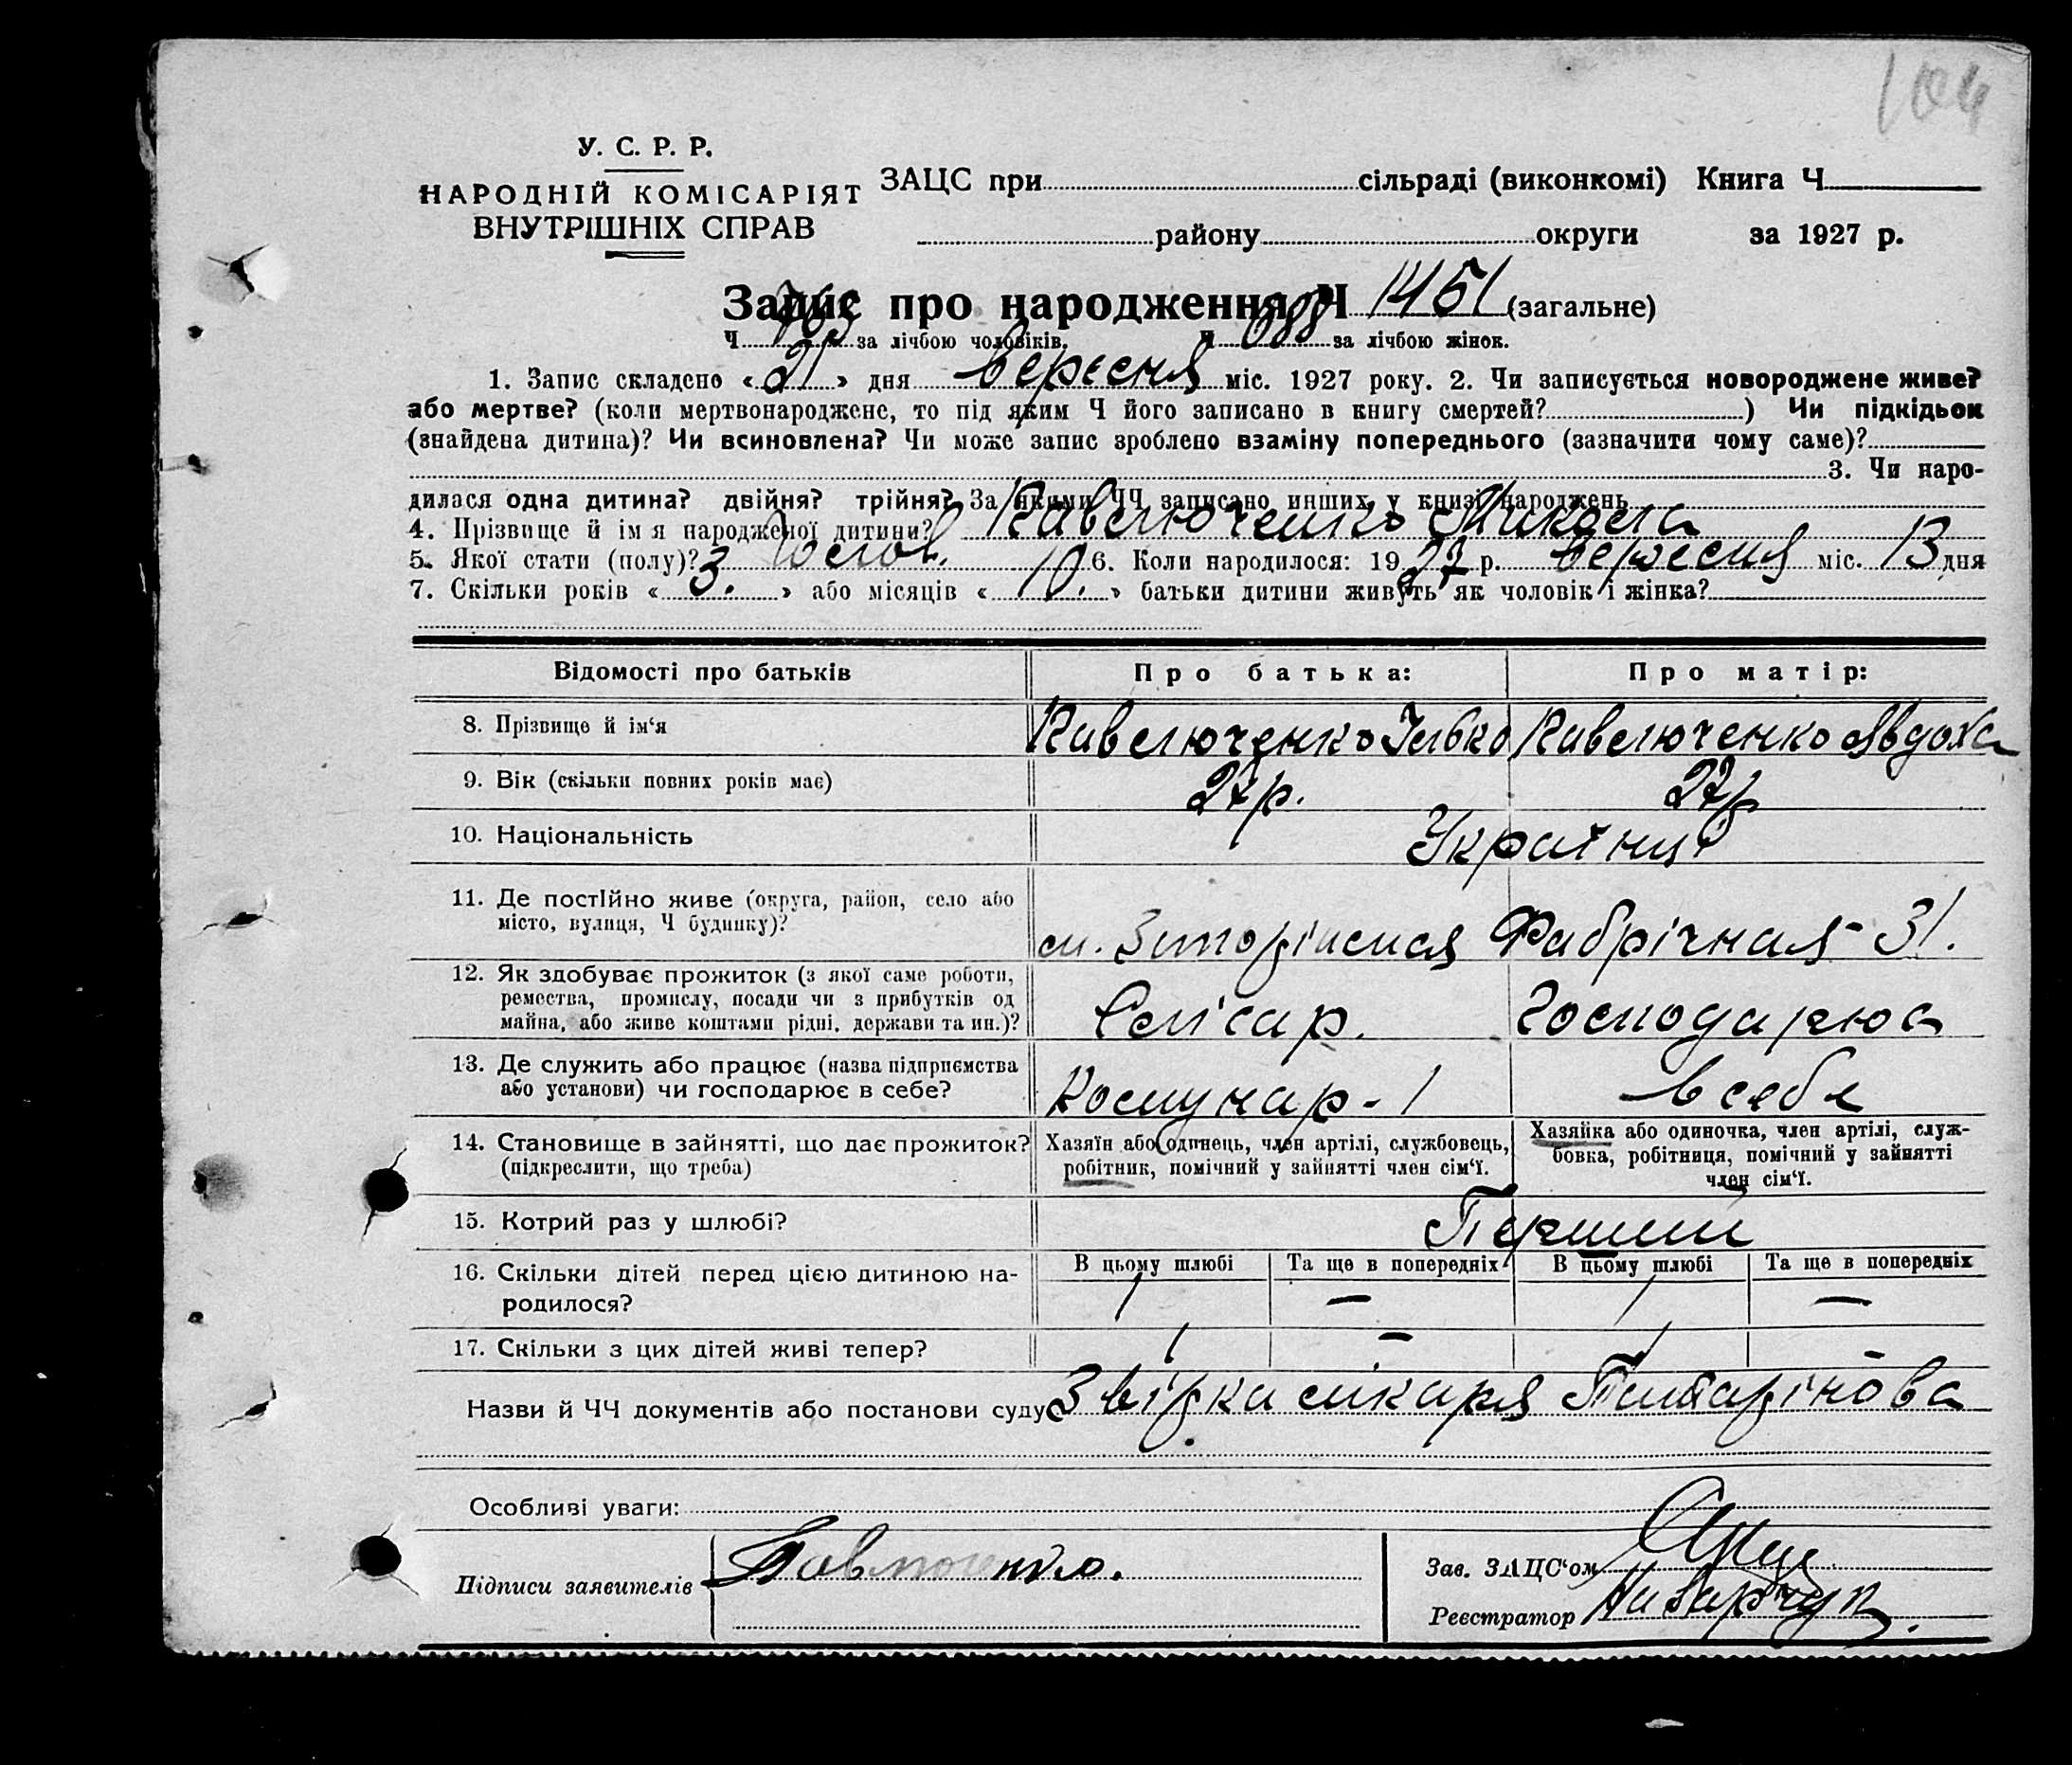 104
У. С. Р. Р.
НАРОДНІЙ КОМІСАРІЯТ
ВНУТРІШНІХ СПРАВ
ЗАЦС при сільраді (виконкомі) Книга Ч
району округи за 1927 р.
Запис про народження Ч 1451 (загальне)
Ч 763 за лічбою чоловіків. Ч 688 за лічбою жінок.
1. Запис складено « 21 » дня вересня міс. 1927 року. 2. Чи записується новороджене живе?
або мертве? (коли мертвонароджене, то під яким Ч його записано в книгу смертей? ) Чи підкідьок
(знайдена дитина)? Чи всиновлена? Чи може запис зроблено взаміну попереднього (зазначити чому саме)?
3. Чи наро-
дилася одна дитина? двійня? трійня? За якими ЧЧ записано инших у книзі народжень
4. Прізвище й ім я народженої дитини? Кавелюченко Микола
5. Якої стати (полу)? Чолов. 6. Коли народилося: 1927 р. вересня міс. 13 дня
7. Скільки років « 3. » або місяців « 10. » батьки дитини живуть як чоловік і жінка?
Відомості про батьків Про батька: Про матір:
8. Прізвище й ім‘я Кавелюченко Кавелюченко Явдоха
9. Вік (скільки повних років має) 27р. 27р
10. Національність Українці
11. Де постійно живе (округа, район, село або
місто, вулиця, Ч будинку)? Фабрічная 31.
12. Як здобуває прожиток (з якої саме роботи,
ремества, промислу, посади чи з прибутків од
майна, або живе коштами рідні, держави та ин.)? Слісар. Господарює
13. Де служить або працює (назва підприємства
або установи) чи господарює в себе? Комунар - 1 в себе
14. Становище в зайнятті, що дає прожиток?
(підкреслити, що треба)
Хазяїн або одинець, член артілі, службовець,
робітник, помічний у зайнятті член сім‘ї.
Хазяйка або одиночка, член артілі, служ-
бовка, робітниця, помічний у зайнятті
член сім‘ї.
15. Котрий раз у шлюбі? Перший
В цьому шлюбі Та ще в попередніх В цьому шлюбі Та ще в попередніх
16. Скільки дітей перед цією дитиною на-
родилося? 1 — 1 —
17. Скільки з цих дітей живі тепер? 1 — 1 -
Назви й ЧЧ документів або постанови суду Звірка лікаря
Особливі уваги:
Підписи заявителів
Зав. ЗАЦС‘ом
Реєстратор